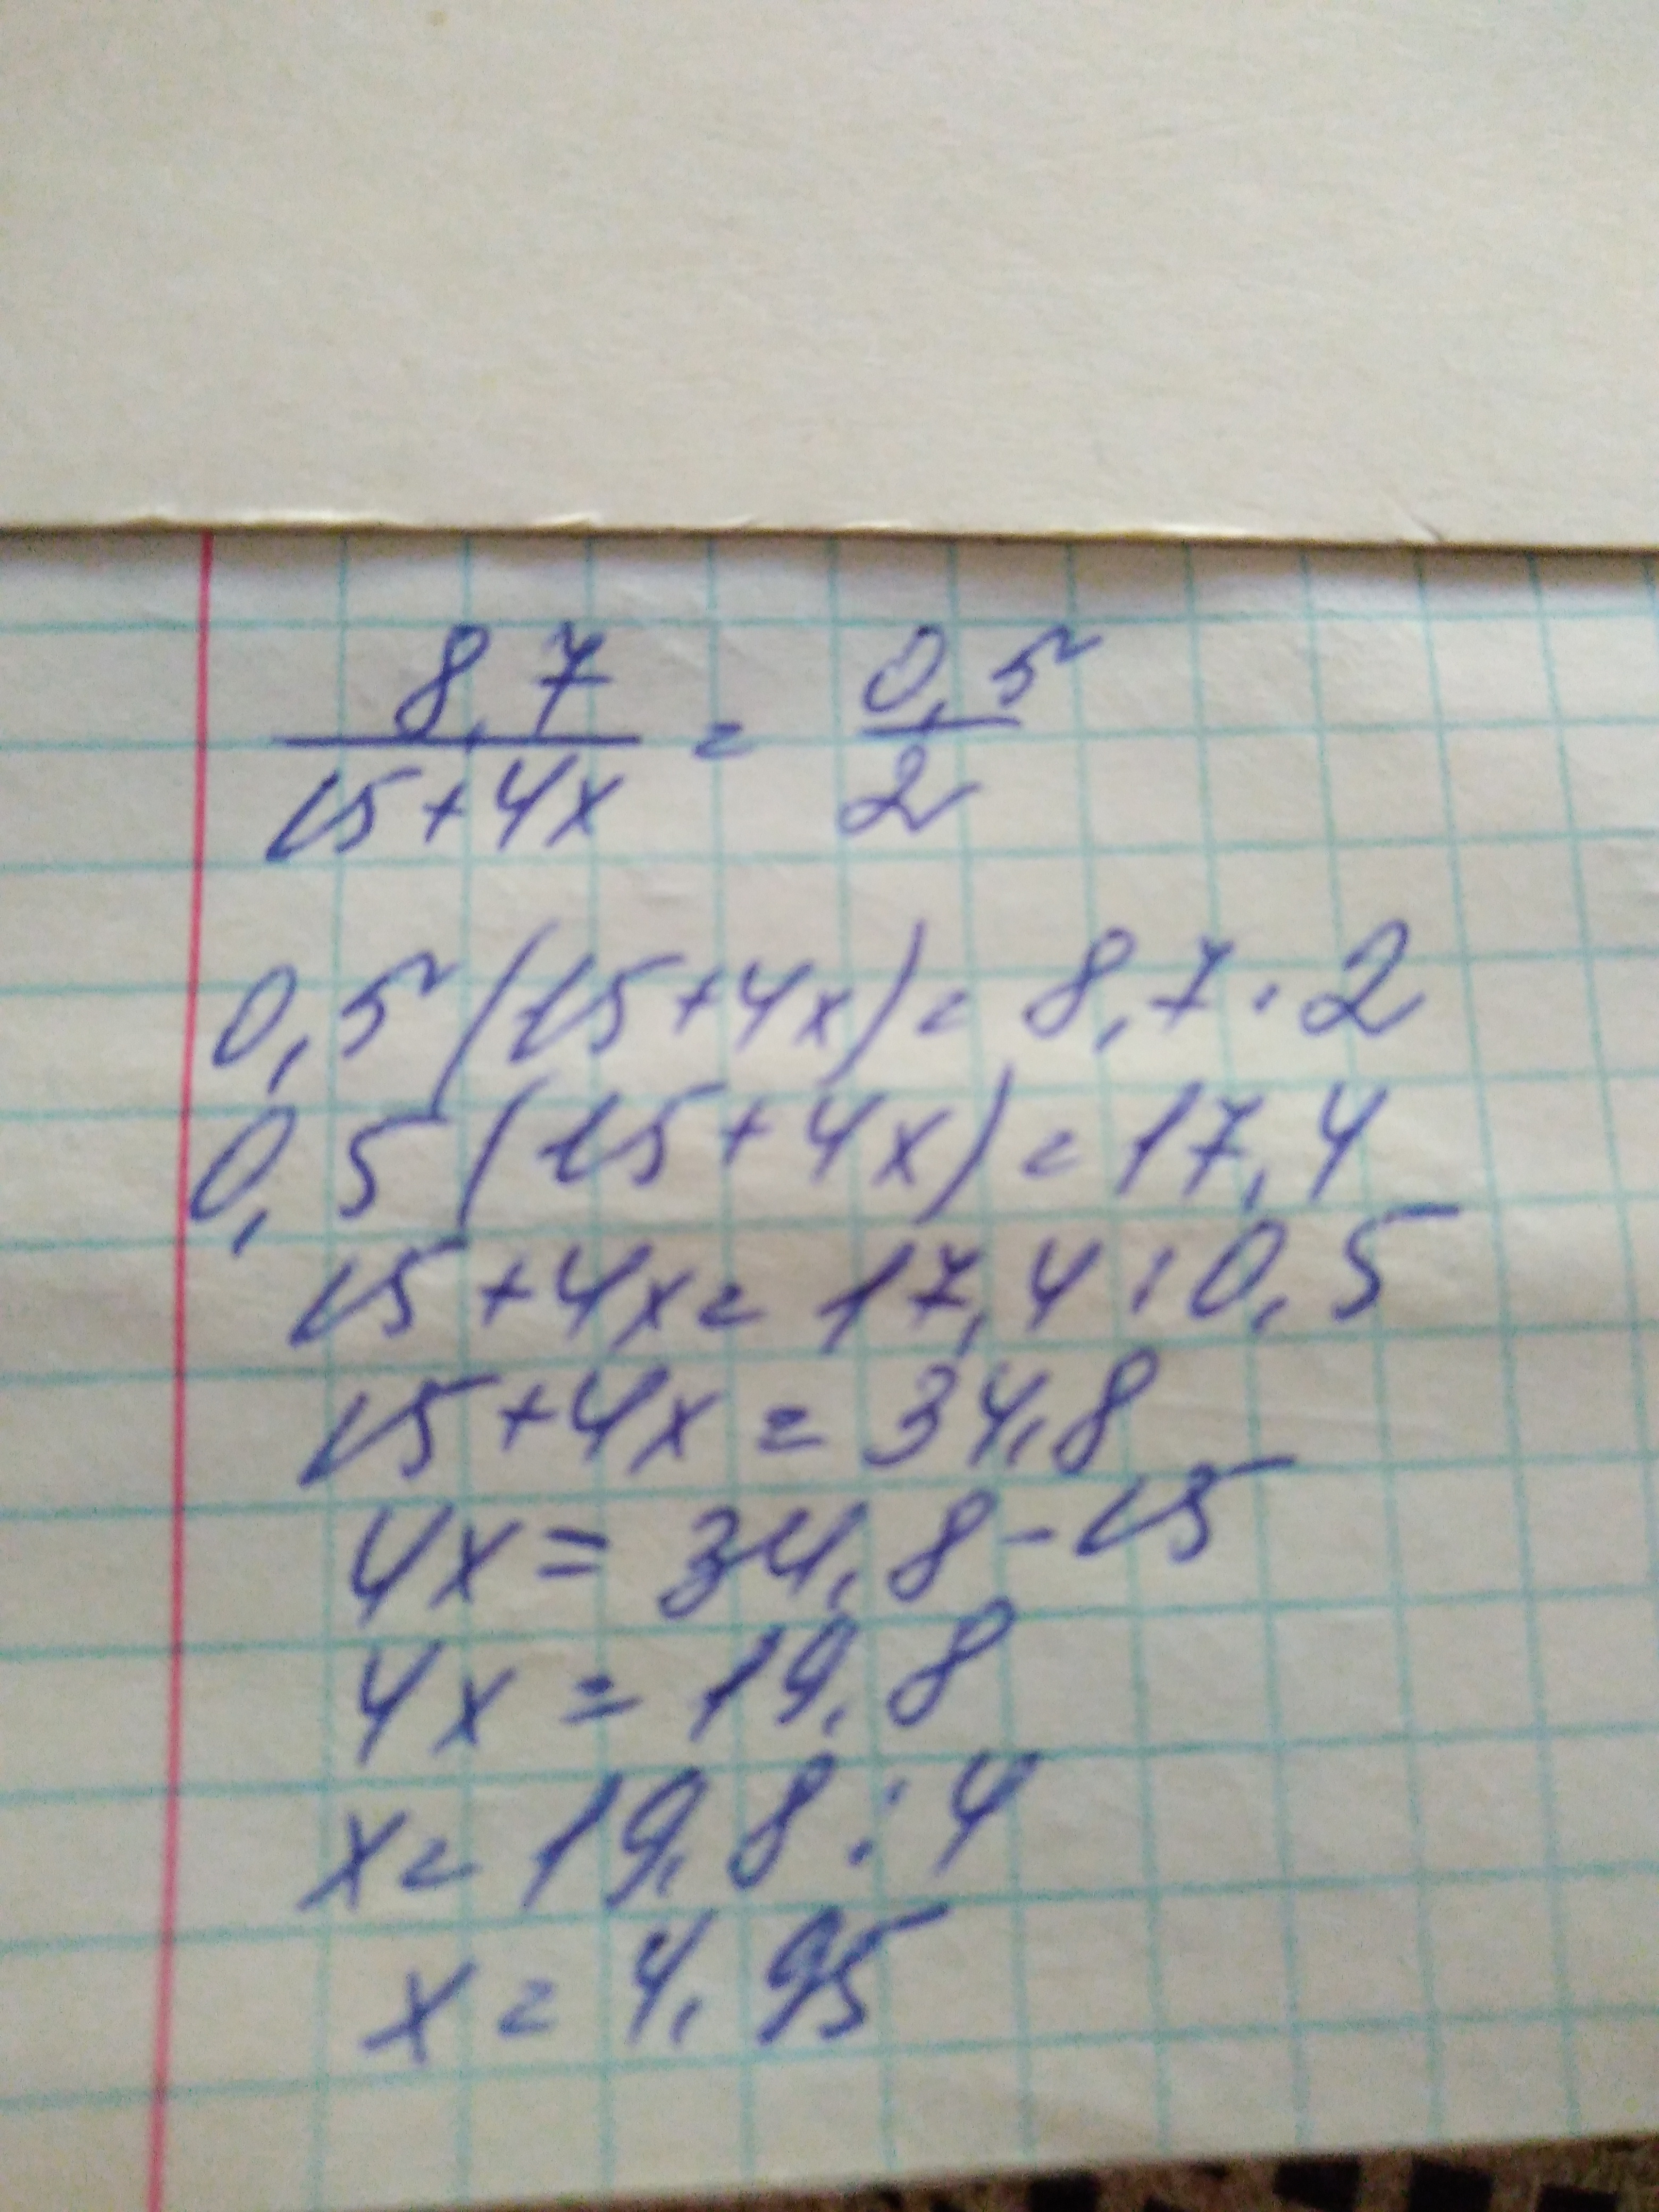 8,7 / 15+4x = 0,5 / 2
0,5(15+4x)=8,7·2
0,5(15+4x)=17,4
15+4x=17,4:0,5
15+4x=34,8
4x=34,8-15
4x=19,8
x=19,8:4
x=4,95